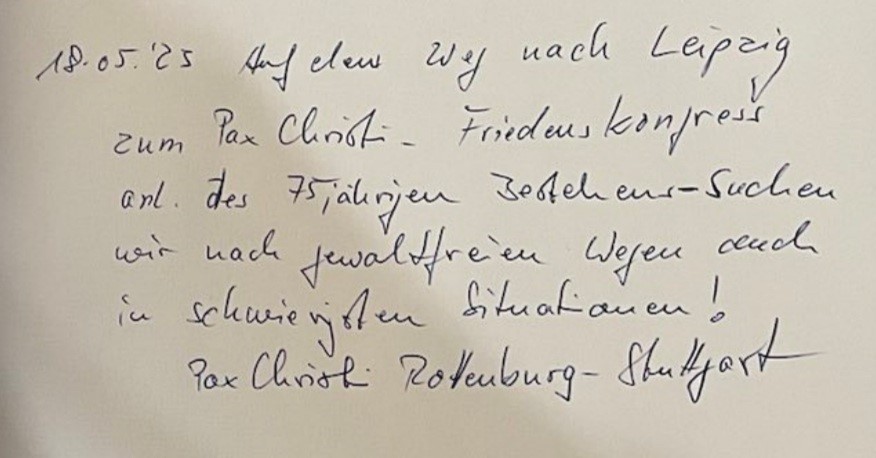 18.05.'25 Auf dem Weg nach Leipzig
zum Pax Christi - Friedenskongress
anl. des 75jährigen Bestehens - Suchen
wir nach gewaltfreien Wegen auch
in schwierigsten Situationen!
Pax Christi Rottenburg - Stuttgart